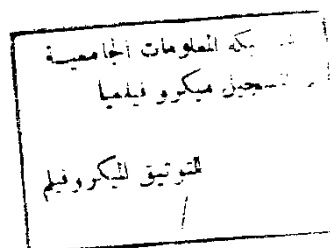 شبكة المعلومات الجامعية
التسجيل ميكروفيلميا
التوثيق الميكروفيلم